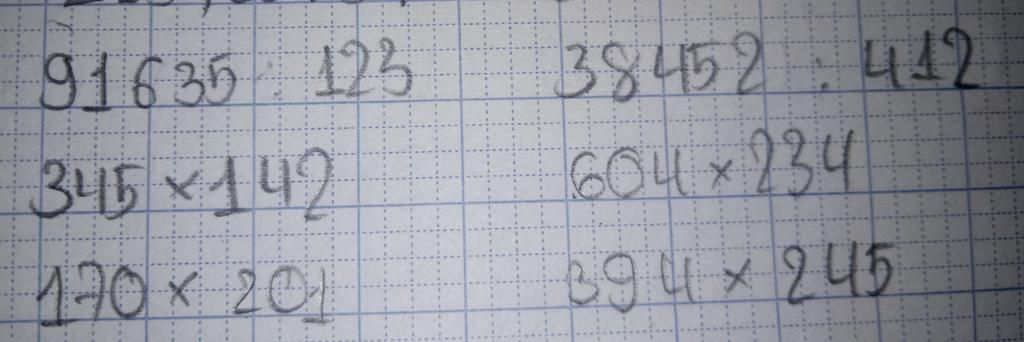 91635 : 123 38452 : 412
345 × 142 604 × 234
170 × 201 394 × 245